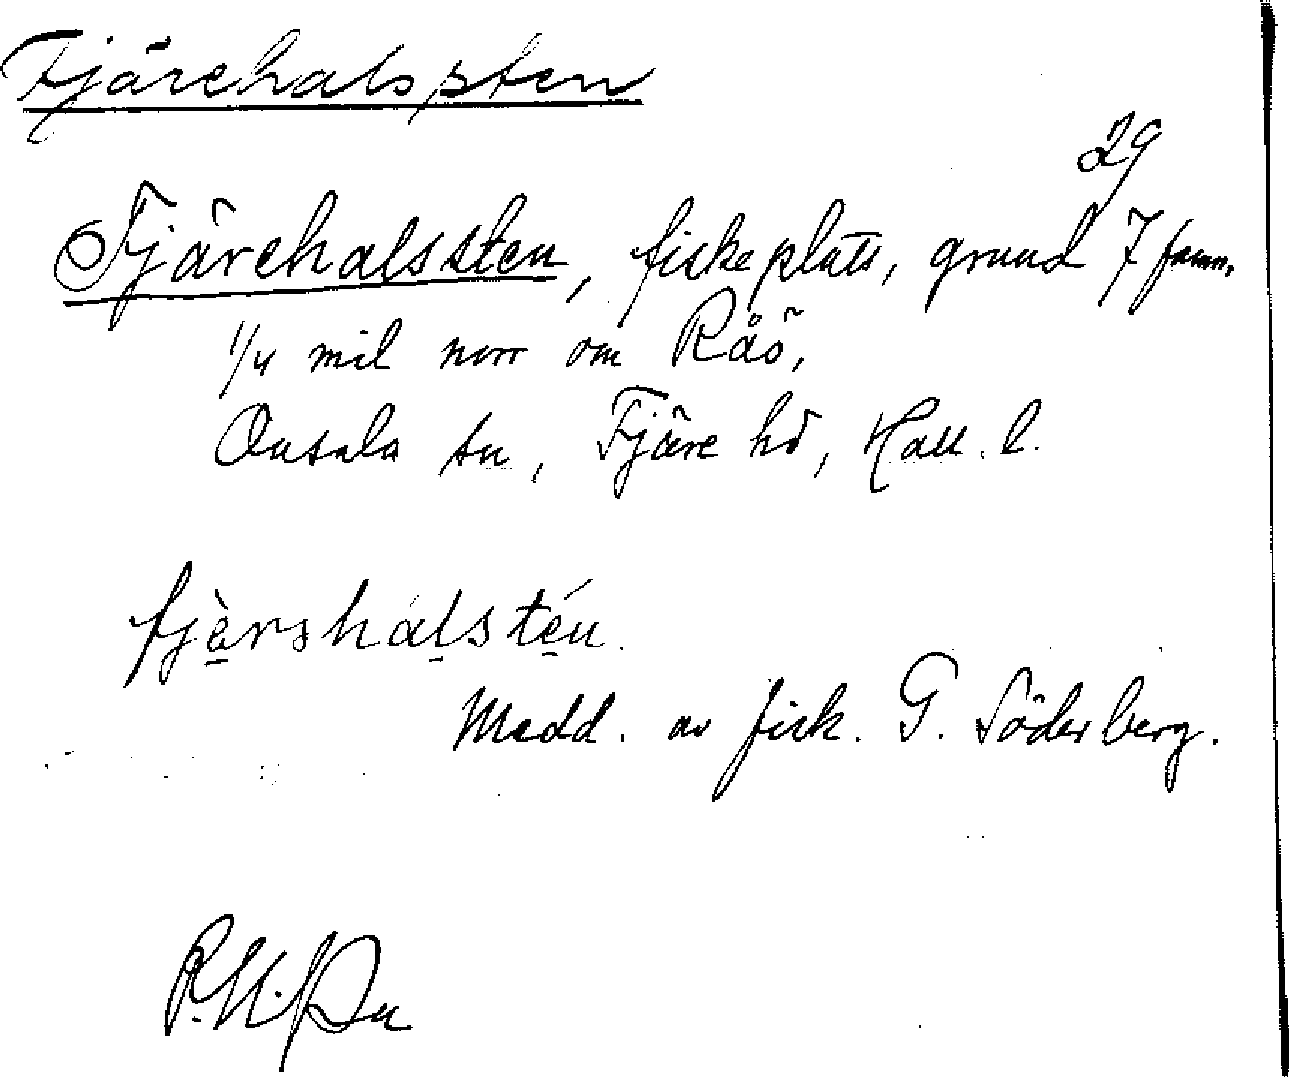 Fjärehalssten
29
Fjärehalssten, fiskeplats, grund 7 famn,
1/4 mil norr om Råö,
Onsala sn, Fjäre hd, Hall. l.
fjèrshálstén.
Medd. av fisk. G. Söderberg.